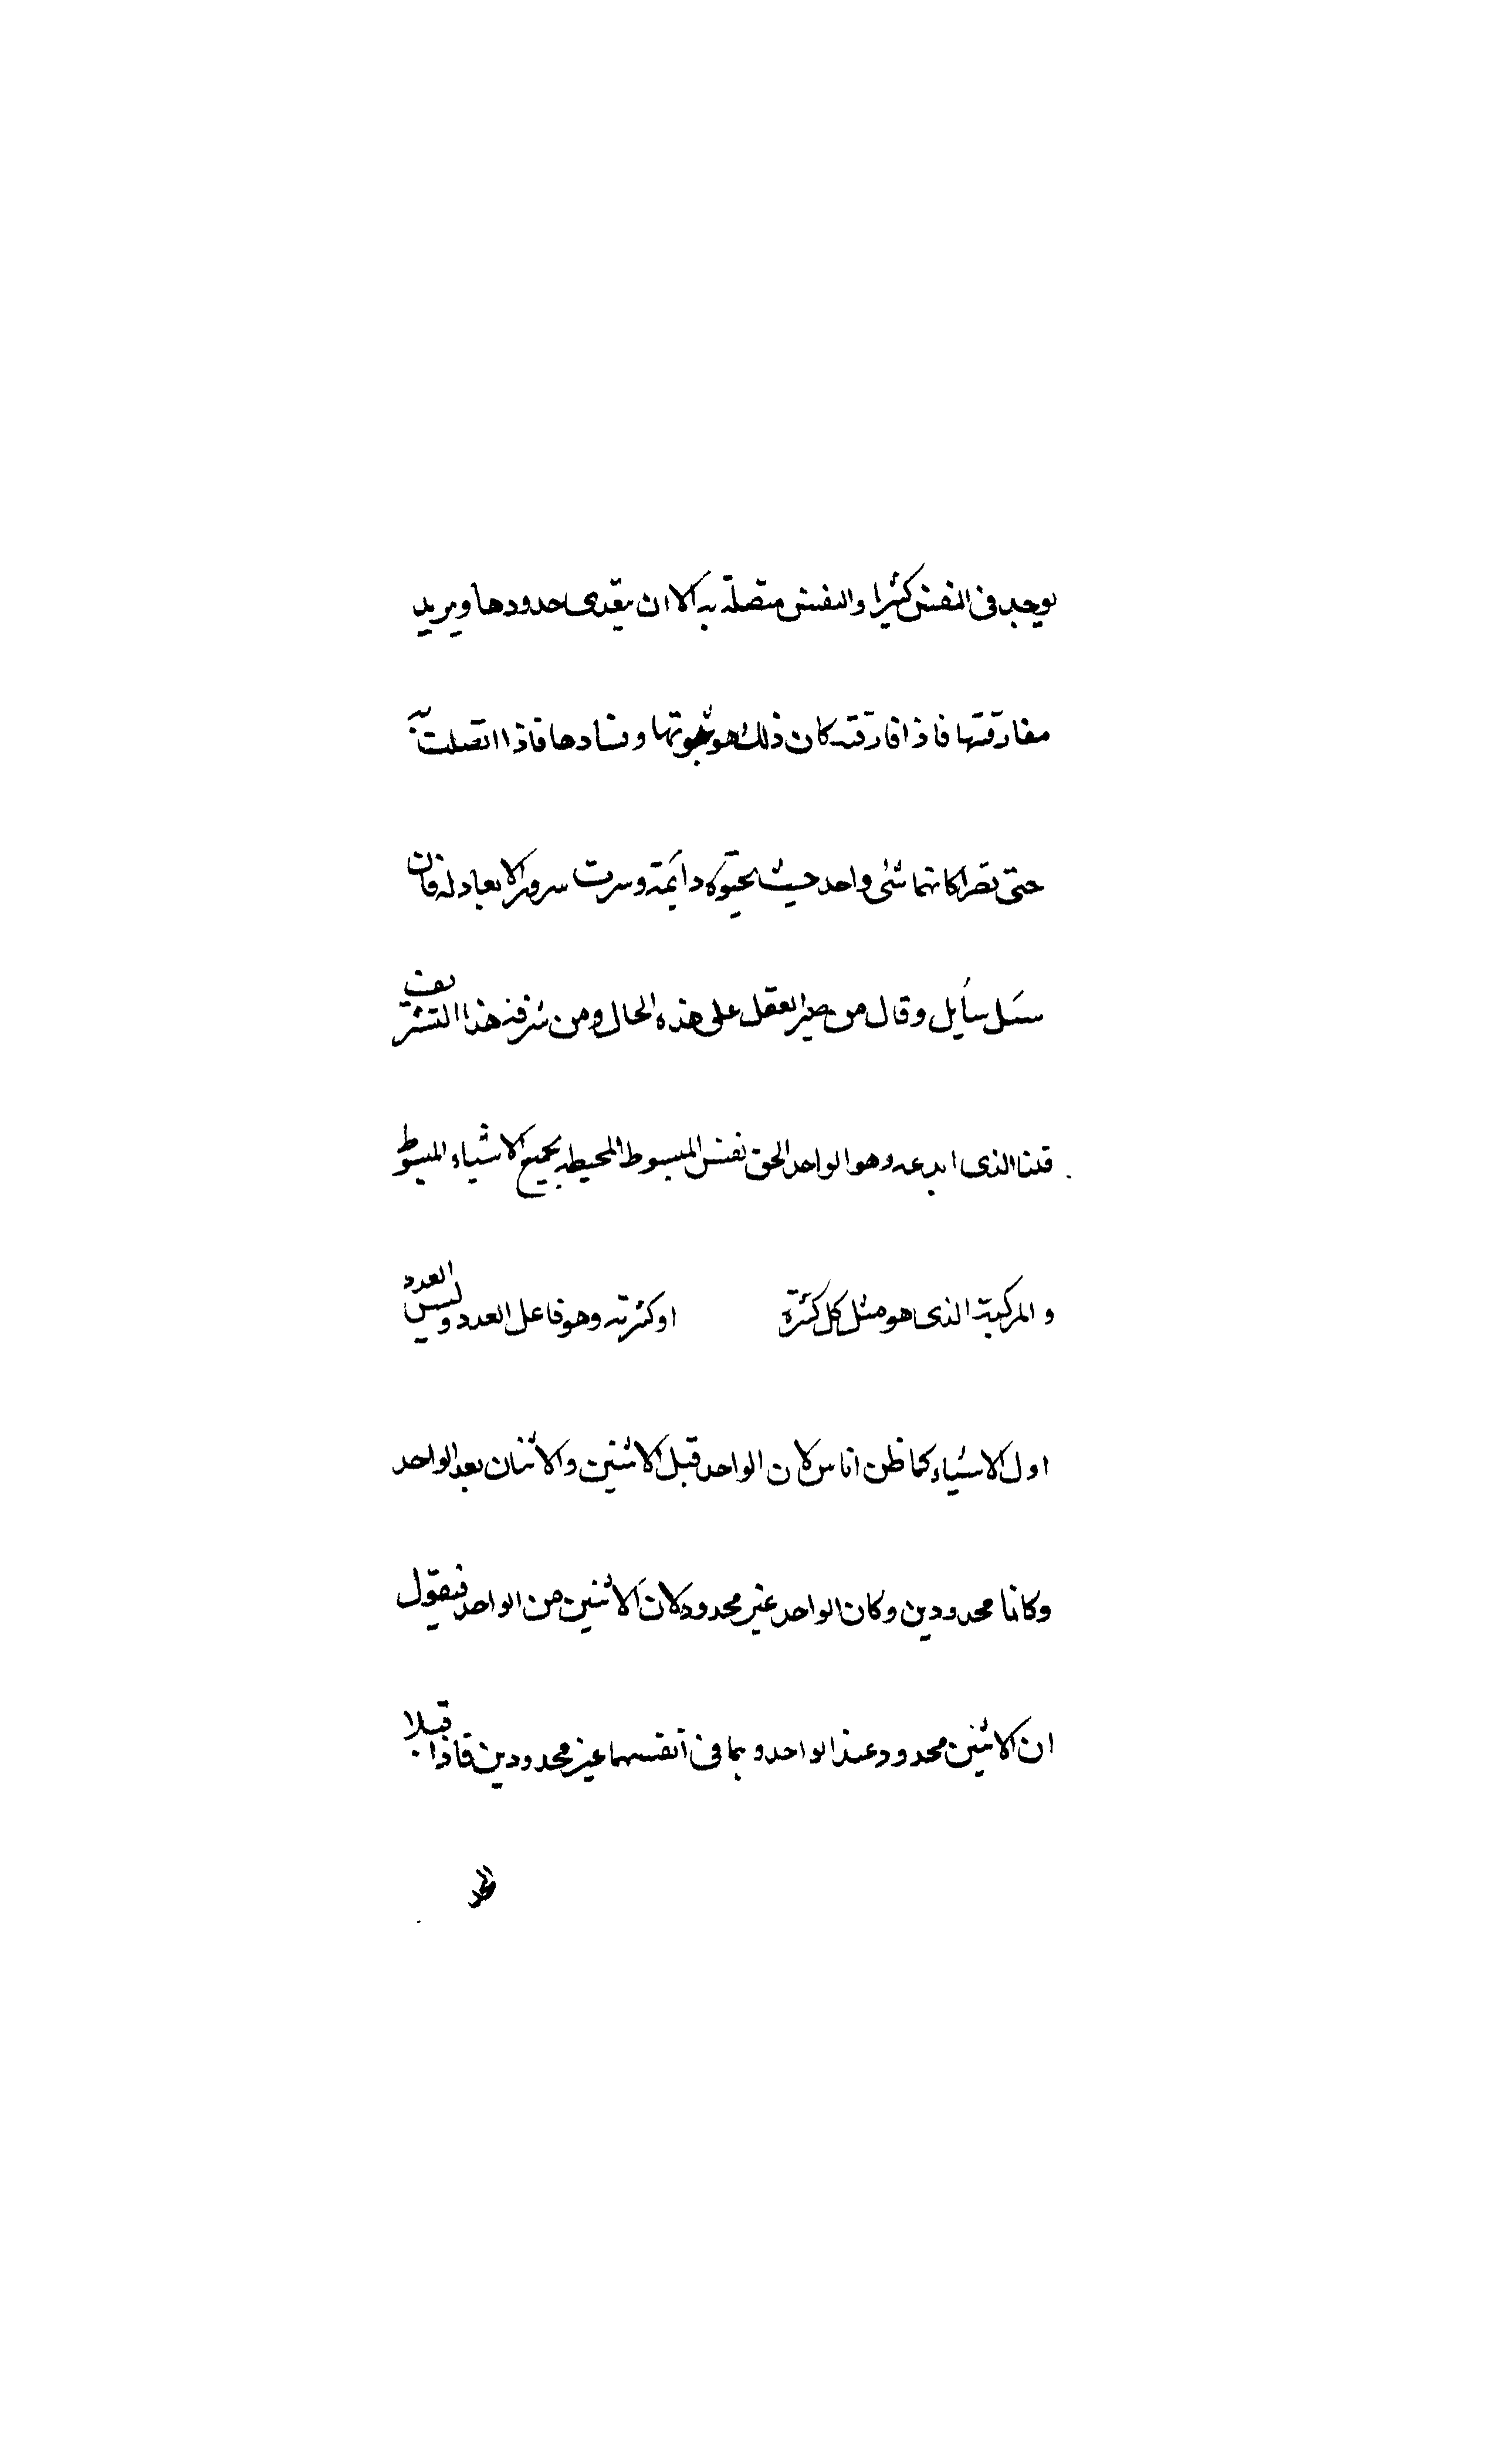 يوجد فى النفس كثيرا والنفس متصلة به الا ان يتعدى حدودها ويريد
مفارقتها فاذا فارقته كان ذلك هو موتها وفسادها فاذا اتصلت به
حتى يصرا كانهما شئ واحد حيث بحيوة دائمة وسرت سرورا لا يعادله فان
سئل سايل وقال من صير العقل على هذه الحال ومن شرفه هذا التشريف
قلنا الذى ابدعه وهو الواحد الحق نفس المبسوط المحيطه بجميع الاشياء المبسوط
و المركبة الذى هو مثل كل كثرة او كثرته وهو فاعل العدد وليس العدد
اول الاشياء كما ظن اناس لان الواحد قبل الاثنين والاثنان بعد الواحد
وكانا محدودين وكان الواحد غير محدود لان الاثنين من الواحد فيقول
ان الاثنين محدود عند الواحد وبما فى انفسهما غير محدودين فاذا قبلا